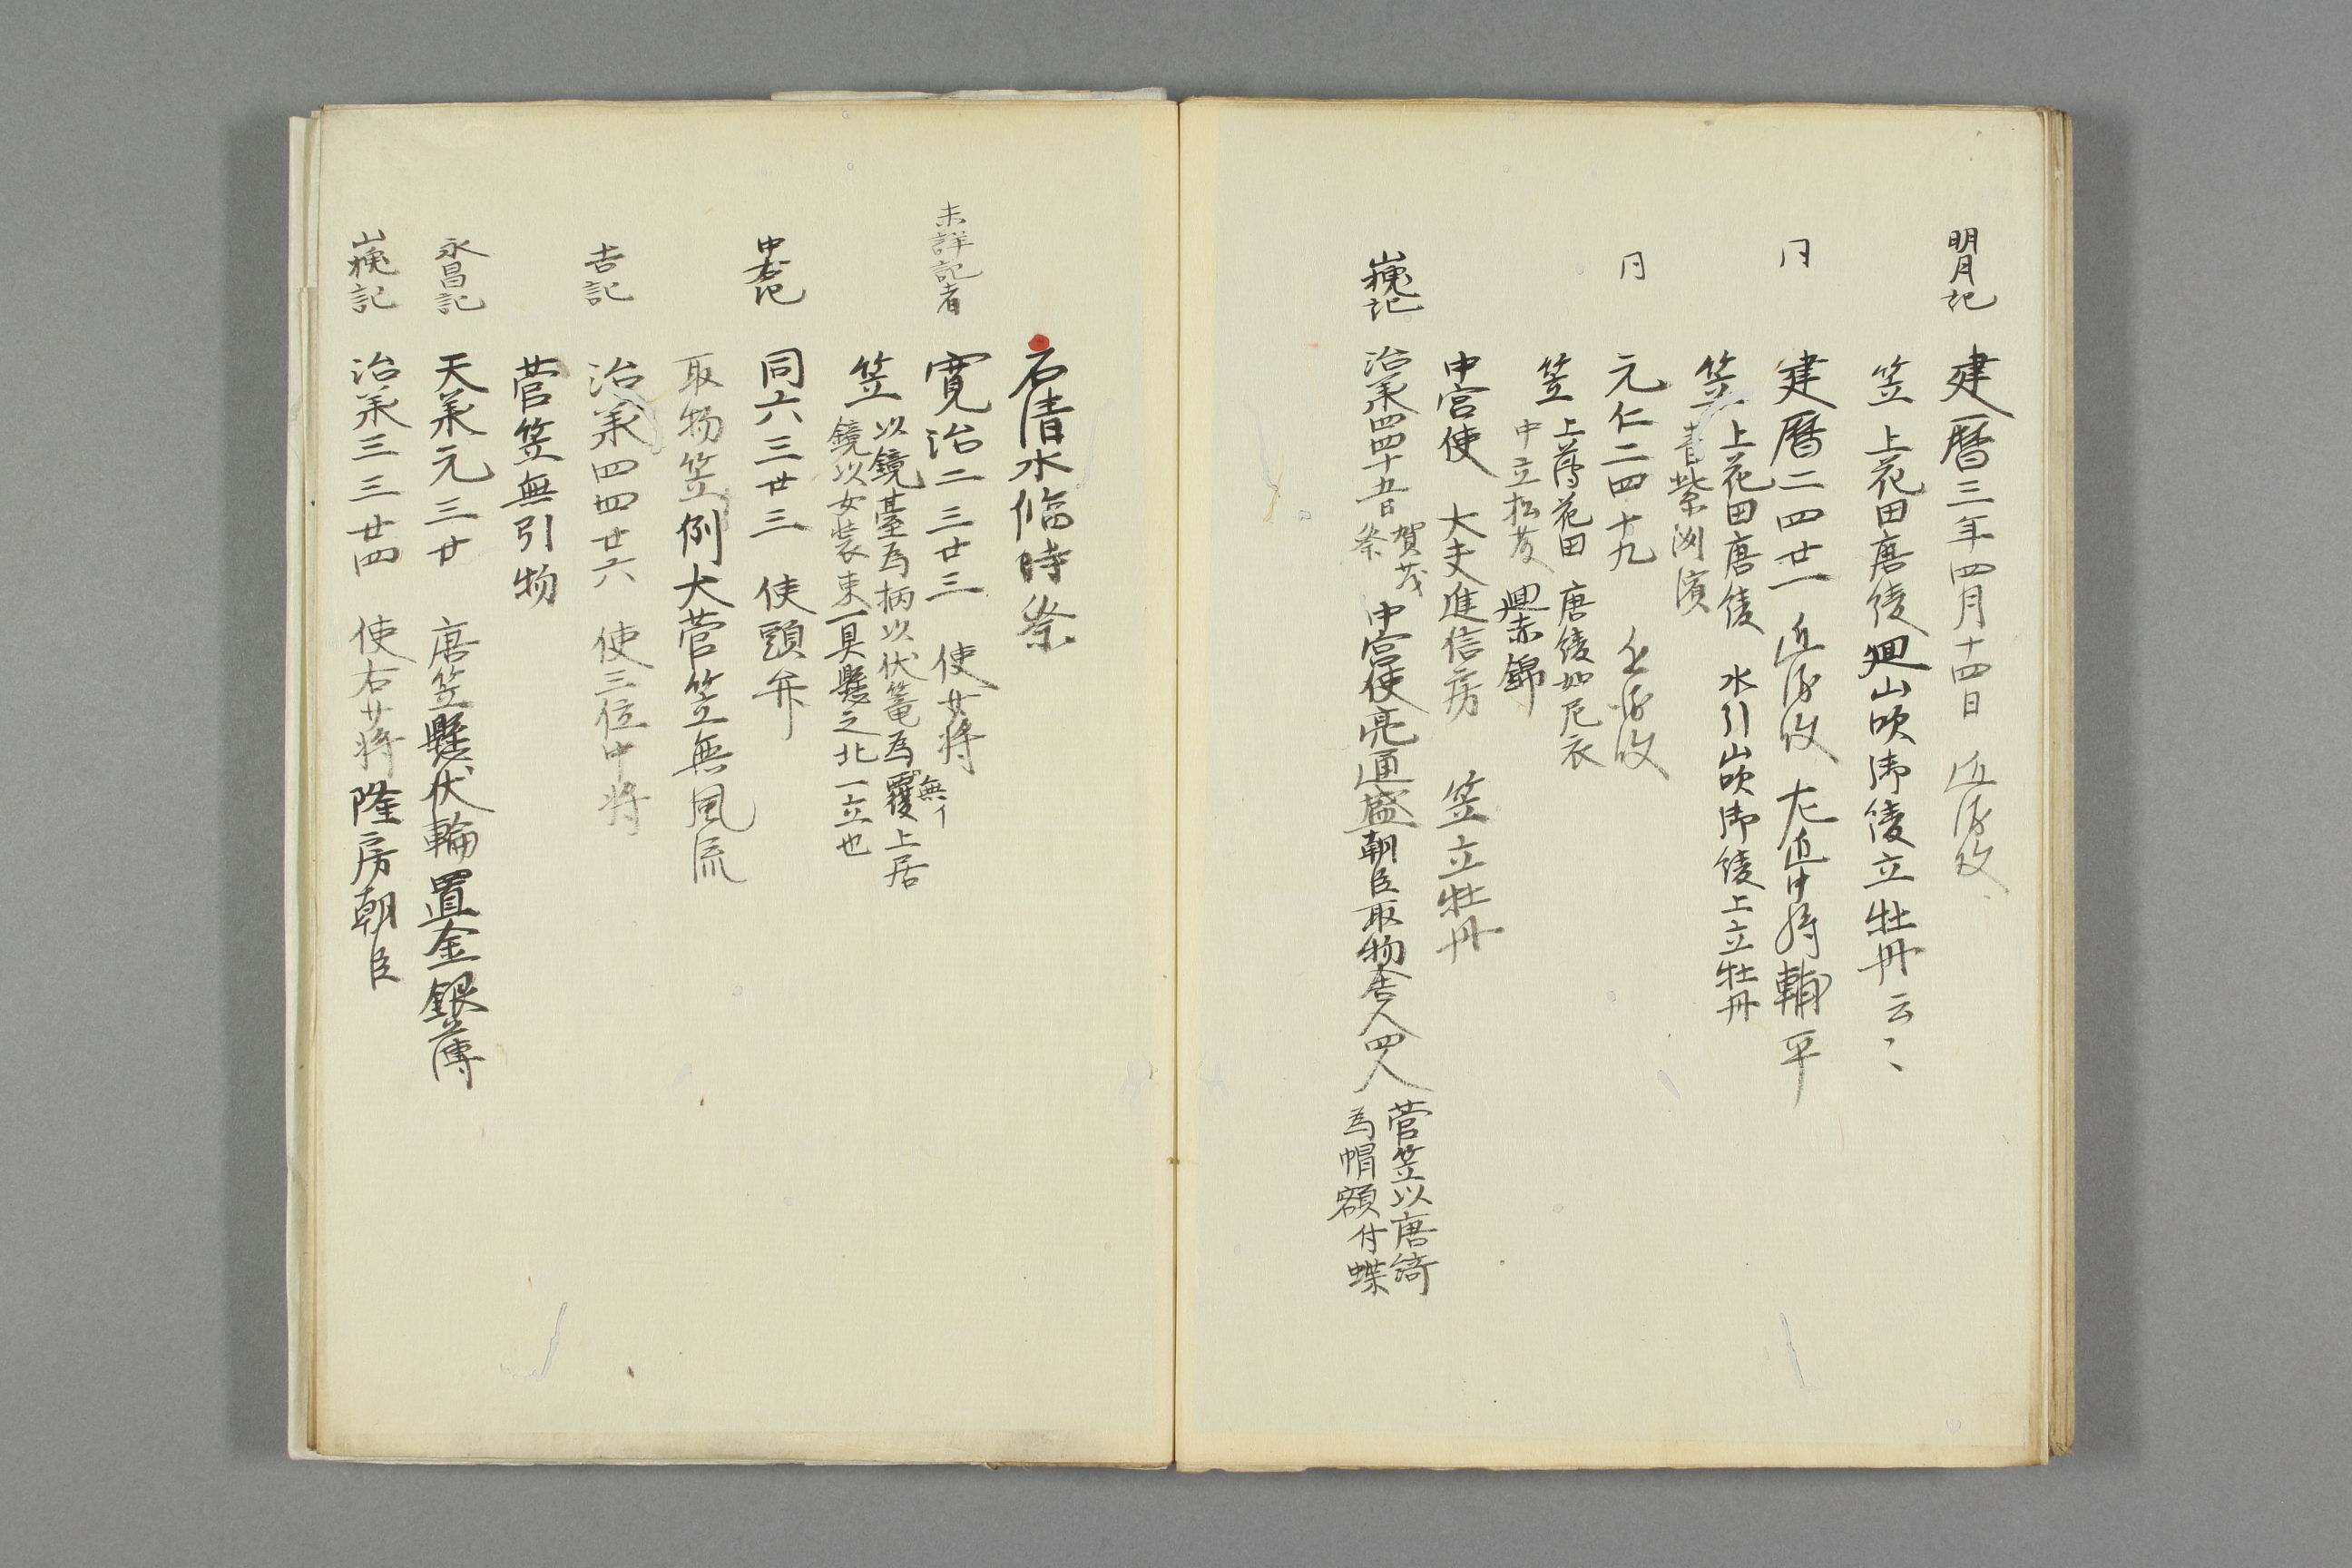 明月記
建暦三年四月十四日 近衛使
笠 上花田唐綾廻山吹御綾立牡丹云々
同
建暦二四廿一 近衛使 左近中将輔平
笠 上花田唐綾 水引山吹御綾上立牡丹
青紫洲濱
同
元仁二四十九 近衛使
笠 上薄花田 唐綾如尼衣
中立松藤 興赤錦
中宮使 大夫進信房 笠立牡丹
山槐記
治承四四十五日 賀茂
祭
中宮使亮通盛朝臣取物舎人四人
菅笠以唐綺
為帽額付蝶
石清水臨時祭
未詳記者
寛治二三廿三 使少将
笠 以鏡臺為柄以伏篭為覆上居
無イ
鏡以女装束一具懸之北一立也
中右記
同六三廿三 使頭弁
取物笠例大菅笠無風流
吉記
治承四四廿六 使三位中将
菅笠無引物
永昌記
天承元三廿 唐笠懸伏輪置金銀薄
山槐記
治承三三廿四 使右少将隆房朝臣